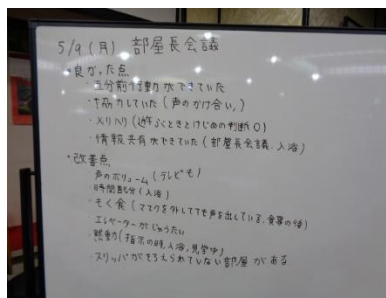 5/9(月) 部屋長会議
・良かった点
・五分前行動ができていた
・協力していた(声のかけ合い。)
・メリハリ(遊ぶときとけじめの判断○)
・情報共有ができていた(部屋長会議、入浴)
・改善点
・声のボリューム(テレビも)
・時間配分(入浴)
・もく食(マスクを外してても声を出している、食事の時)
・エレベーターがじゅうたい
・黙動(指示の時、入浴、見学中)
・スリッパがそろえられていない部屋がある